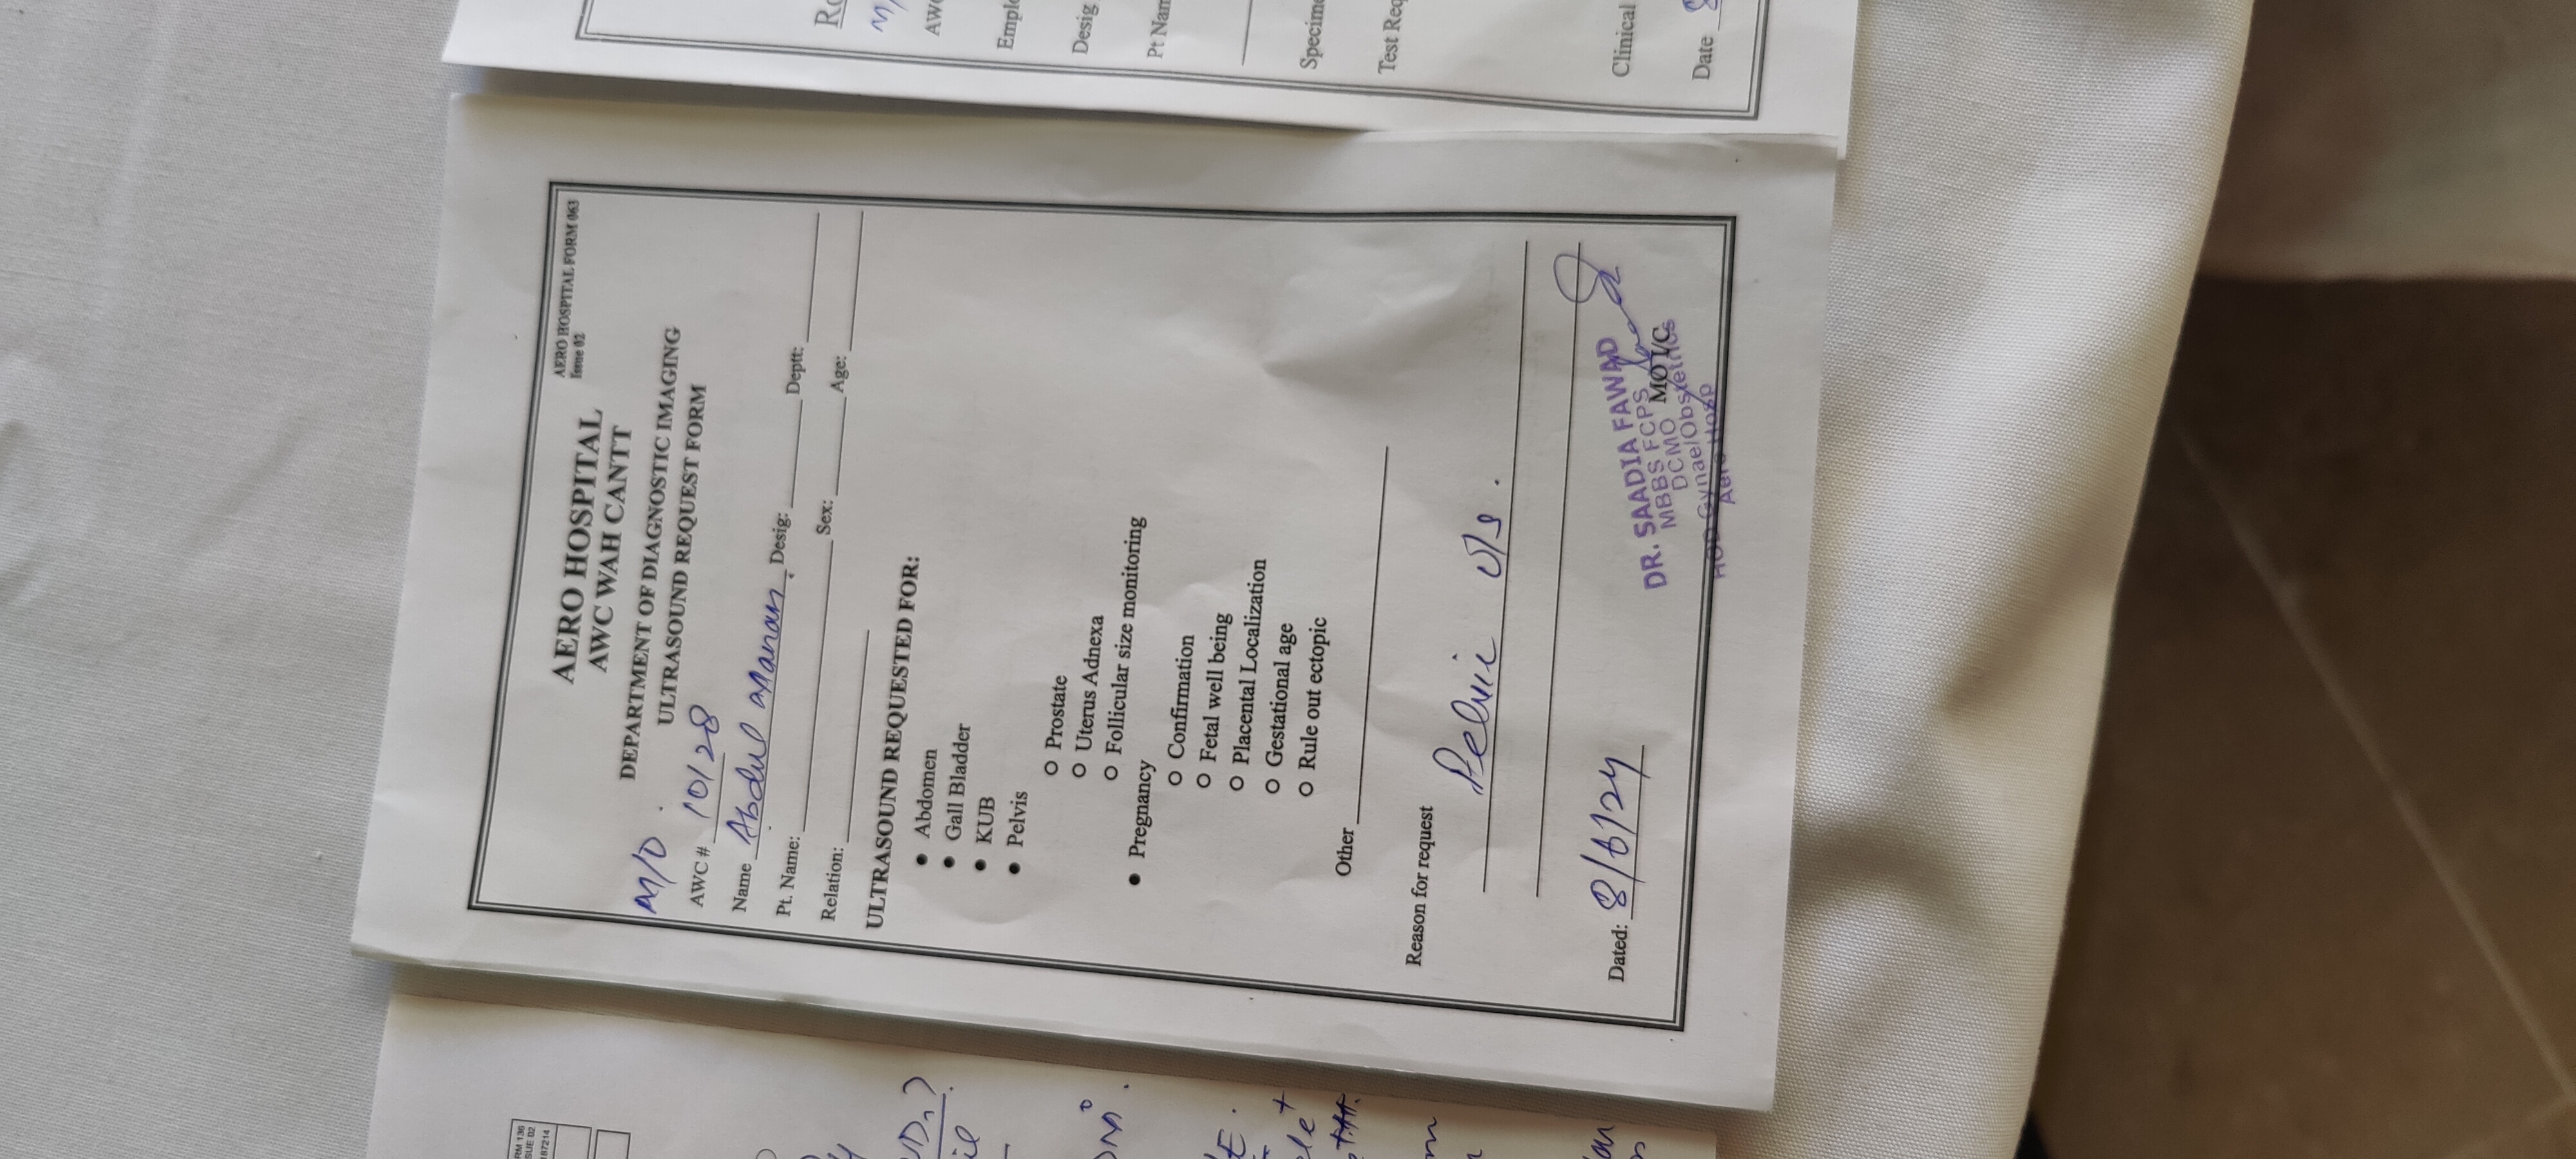 AERO HOSPITAL FORM 063
Issue 02
AERO HOSPITAL
AWC WAH CANTT
DEPARTMENT OF DIAGNOSTIC IMAGING
ULTRASOUND REQUEST FORM
M/O
AWC # 10128
Name Abdul Manan Desig: Deptt:
Pt. Name: Sex: Age:
Relation:
ULTRASOUND REQUESTED FOR:
• Abdomen
• Gall Bladder
• KUB
• Pelvis
o Prostate
o Uterus Adnexa
o Follicular size monitoring
• Pregnancy
o Confirmation
o Fetal well being
o Placental Localization
o Gestational age
o Rule out ectopic
Other
Reason for request
Pelvic U/S.
Dated: 8/6/24
DR. SAADIA FAWAD
MBBS FCPS
DCMO MO I/C
HOD Gynae/Obstetrics
Aero Hosp
M/
AWC
Emplo
Desig
Pt Nam
Specime
Test Req
Clinical
Date 8
RM 136
SUE 02
187214